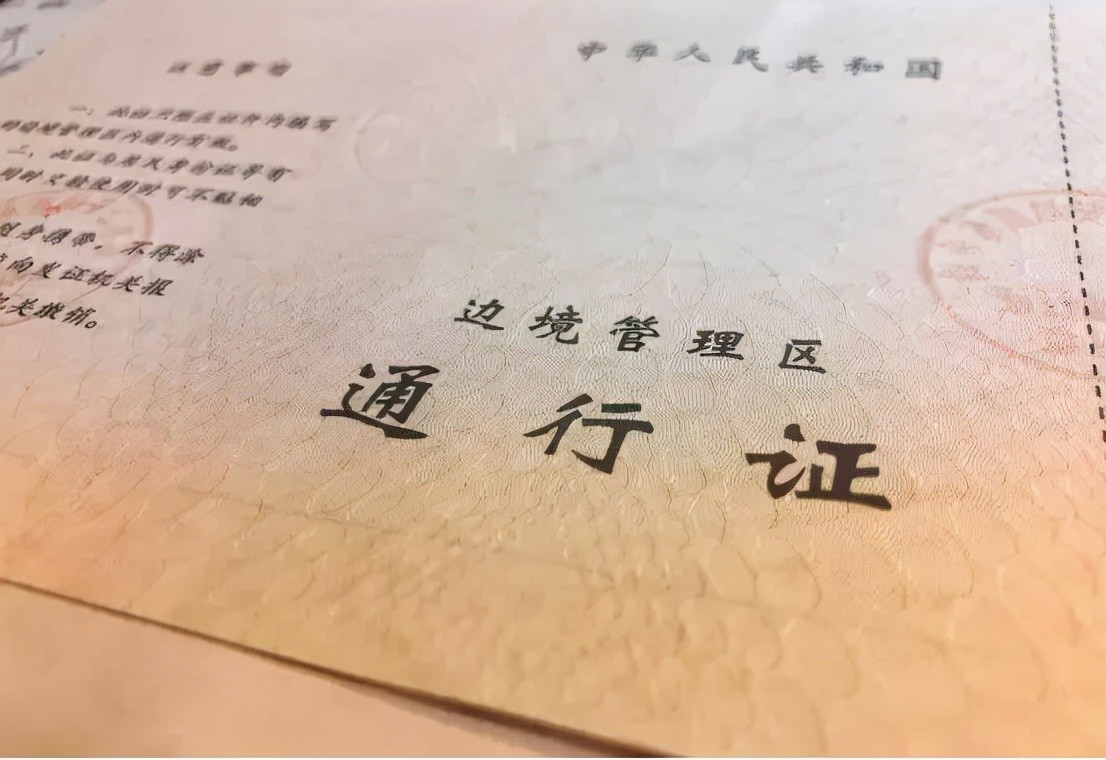 注意事项
一、此证只限在证件内填写
的边境管理区内通行有效。
二、此证与居民身份证等有
同时交验使用时可不贴相
随身携带，不得涂
向发证机关报
机关撤销。
中华人民共和国
边境管理区
通行证